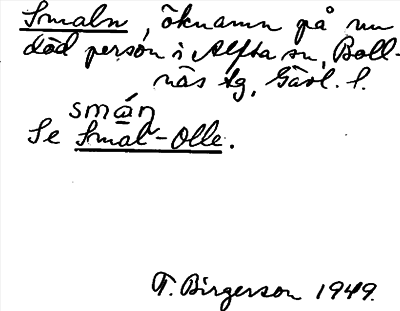 Smaln, öknamn på nu
död person i Alfta sn, Boll-
näs tg, Gävl. l.
smáņ
Se Smal-Olle.
T. Birgerson 1949.